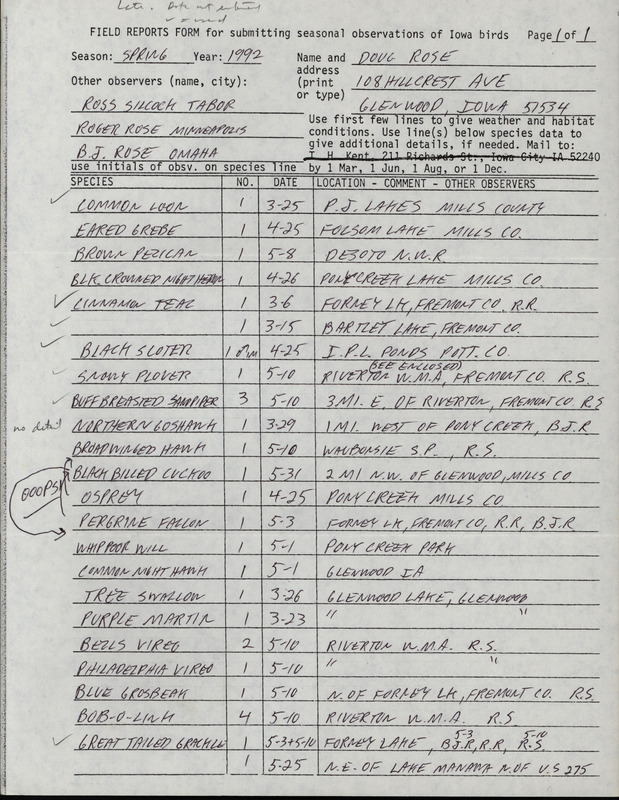 Late. Date not entered
✓ = used
FIELD REPORTS FORM for submitting seasonal observations of Iowa birds Page 1 of 1
Season: SPRING Year: 1992 Name and DOUG ROSE
address
Other observers (name, city): (print 108 HILLCREST AVE
or type)
ROSS SILCOCK TABOR GLENWOOD, IOWA 51534
Use first few lines to give weather and habitat
ROGER ROSE MINNEAPOLIS conditions. Use line(s) below species data to
give additional details, if needed. Mail to:
B.J. ROSE OMAHA T. H. Kent, 211 Richards St., Iowa City IA 52240
use initials of obsv. on species line by 1 Mar, 1 Jun, 1 Aug, or 1 Dec.
SPECIES NO. DATE LOCATION - COMMENT - OTHER OBSERVERS
✓ COMMON LOON 1 3-25 P.J. LAKES MILLS COUNTY
EARED GREBE 1 4-25 FOLSOM LAKE MILLS CO.
BROWN PELICAN 1 5-8 DESOTO N.W.R
BLK CROWNED NIGHT HERON 1 4-26 PONY CREEK LAKE MILLS CO.
✓ CINNAMON TEAL 1 3-6 FORNEY LK, FREMONT CO. R.R.
✓ 1 3-15 BARTLET LAKE, FREMONT CO.
✓ BLACK SCOTER 1 4-25 I.P.L PONDS POTT. CO.
(SEE ENCLOSED)
✓ SNOWY PLOVER 1 5-10 RIVERTON W.M.A, FREMONT CO. R.S.
✓ BUFF BREASTED SANDPIPER 3 5-10 3 MI. E. OF RIVERTON, FREMONT CO. R.S
no detail NORTHERN GOSHAWK 1 3-29 1 MI. WEST OF PONY CREEK, B.J.R
BROADWINGED HAWK 1 5-10 WAUBONSIE S.P., R.S.
BLACK BILLED CUCKOO 1 5-31 2 MI N.W. OF GLENWOOD, MILLS CO
OOOPS! OSPREY 1 4-25 PONY CREEK MILLS CO.
PERGRINE FALLON 1 5-3 FORNEY LK, FREMONT CO, R.R, B.J.R
WHIPPOOR WILL 1 5-1 PONY CREEK PARK
COMMON NIGHT HAWK 1 5-1 GLENWOOD IA
TREE SWALLOW 1 3-26 GLENWOOD LAKE, GLENWOOD
PURPLE MARTIN 1 3-23 " "
BELLS VIREO 2 5-10 RIVERTON W.M.A. R.S.
PHILADELPHIA VIREO 1 5-10 " "
BLUE GROSBEAK 1 5-10 N. OF FORNEY LK, FREMONT CO. R.S.
BOB-O-LINK 4 5-10 RIVERTON W.M.A. R.S
5-3 5-10
✓ GREAT TAILED GRACKLE 1 5-3+5-10 FORNEY LAKE, B.J.R, R.R, R.S.
1 5-25 N.E. OF LAKE MANAWA N. OF U.S 275